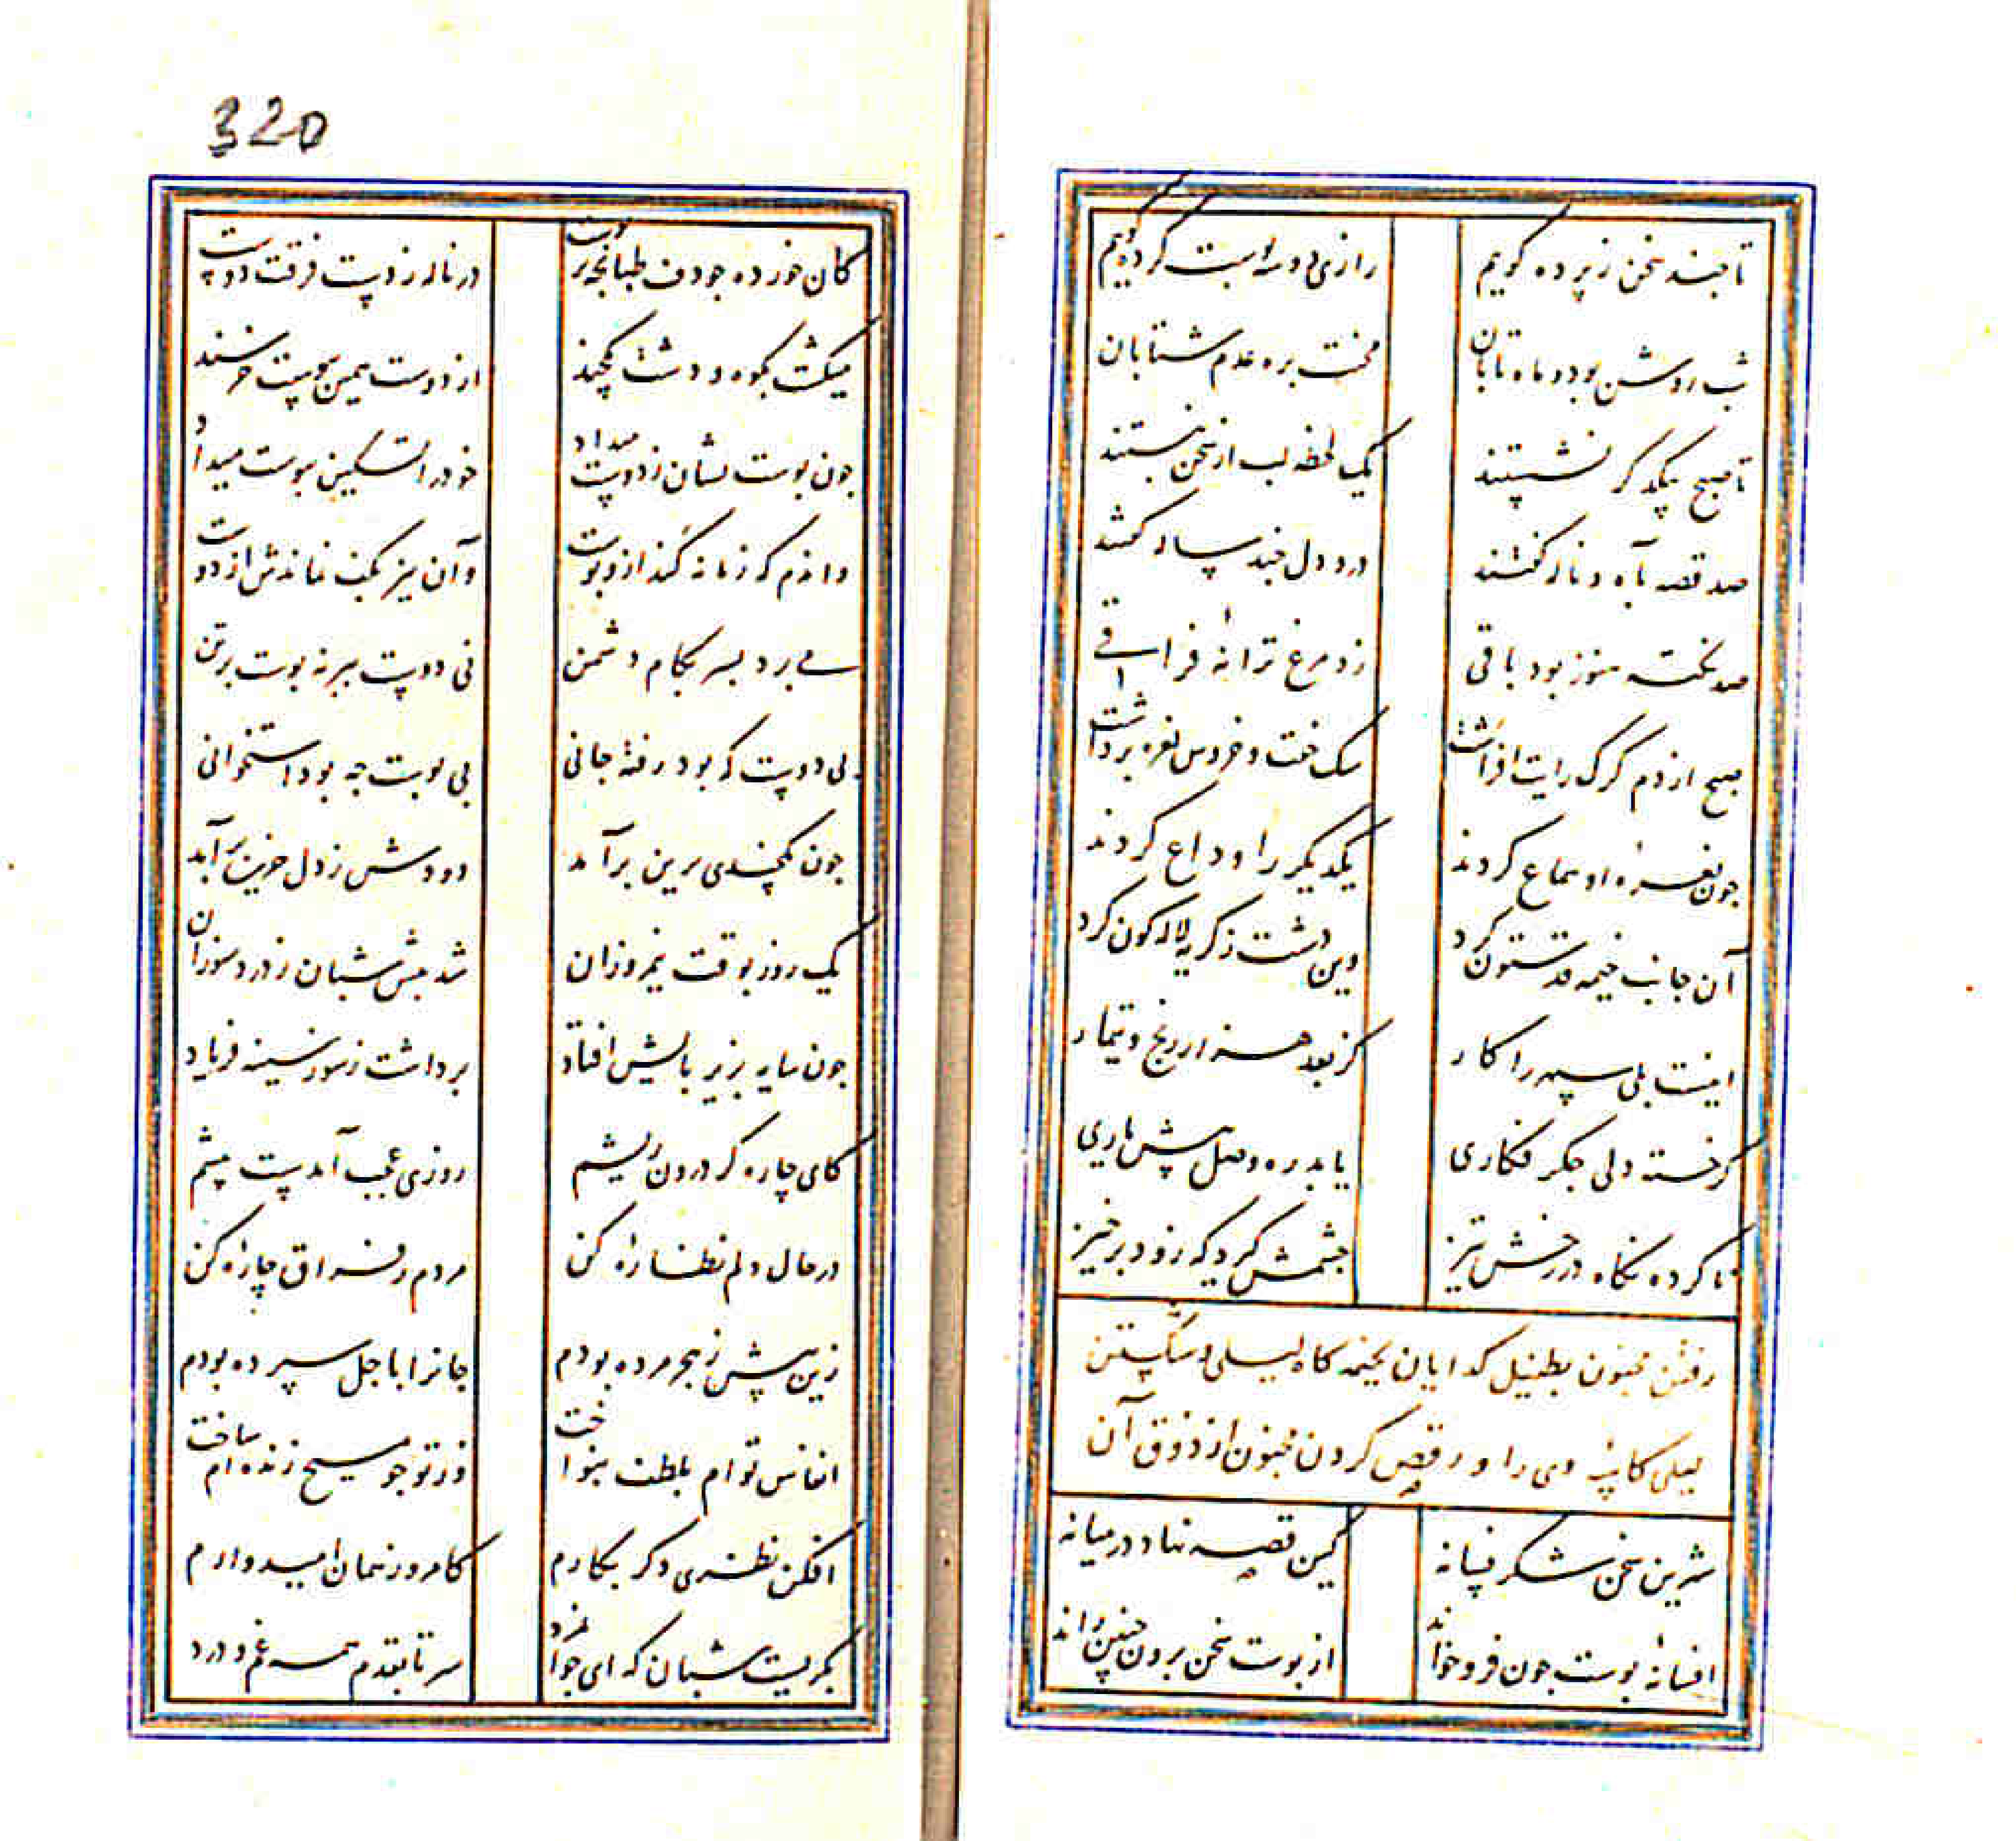 320
تا چند سخن ز پرده گویم رازی دو سه اوست کرده گویم
شب روشن بود و ماه تابان محنت بره عدم شتابان
تا صبح بیکدگر نشستند یک لحظه لب از سخن نبستند
صد قصه آه و ناله گفتند درد دل چند ساله گفتند
صد نکته هنوز بود باقی زد مرغ ترانه فراقی
صبح از دم گرگ رایت افراشت سگ خفت و خروس نعره برداشت
چون نعره او سماع کردند یکدیگر را وداع کردند
آن جانب خیمه قد ستون کرد وین دشت ز گریه لاله گون کرد
اینست بلی سپهر را کار کز بعد هزار رنج و تیمار
گر خسته دلی جگر فکاری یابد ره وصل پیش یاری
نا کرده نگاه در رخش تیز چشمش گیرد که زود برخیز
رفتن مجنون بطفیل گدایان بخیمه گاه لیلی و شکستن
لیلی کاسه وی را و رقص کردن مجنون از ذوق آن
شیرین سخن شکر فسانه کین قصه نهاد در میانه
افسانه پوست چون فرو خواند از پوست سخن برون چنین راند
کان خورده چو دف طبانچه بر پوست در ناله ز دست فرقت دوست
میگشت بکوه و دشت یکچند از دوست همین بپوست خرسند
چون پوست نشان ز دوست میداد خود را تسکین بپوست میداد
واندم که زمانه کند ازو پوست وآن نیز بکف نماندش از دوست
می برد بسر بکام دشمن نی دوست ببر نه پوست بر تن
بی دوست که بود رفته جانی بی پوست چه بود استخوانی
چون یکچندی برین برآمد دودش ز دل حزین برآمد
یک روز بوقت نیمروزان شد پیش شبان ز درد سوزان
چون سایه بزیر پایش افتاد برداشت ز سوز سینه فریاد
کای چاره گر درون ریشم روزی عجب آمدست پیشم
در حال دلم نظاره کن مردم ز فراق چاره کن
زین پیش ز هجر مرده بودم جانرا باجل سپرده بودم
انفاس توام بلطف بنواخت وز تو چو مسیح زنده ام ساخت
افکن نظری دگر بکارم کامروز همان امیدوارم
بگریست شبان که ای جوانمرد سر تا بقدم همه غم و درد